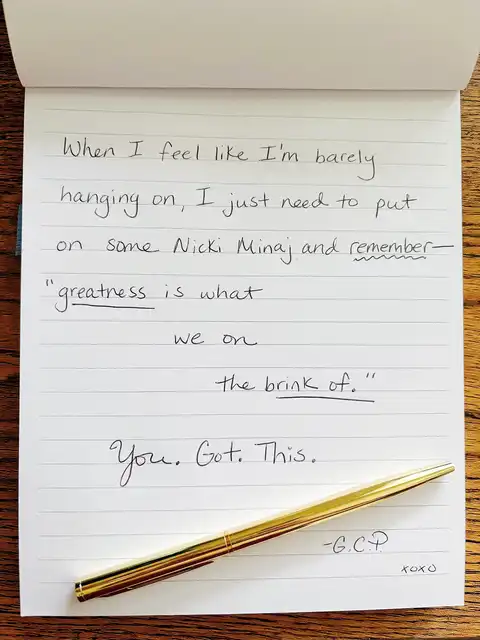 When I feel like I'm barely
hanging on, I just need to put
on some Nicki Minaj and remember—
"greatness is what
we on
the brink of."
You. Got. This.
-G.C.P
xoxo